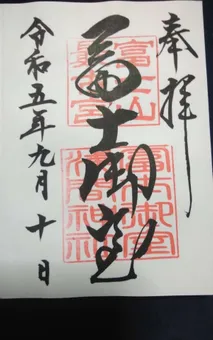 奉拝
冨士御室
令和五年九月十日
富士山
最古宮
冨士御室
浅間神社